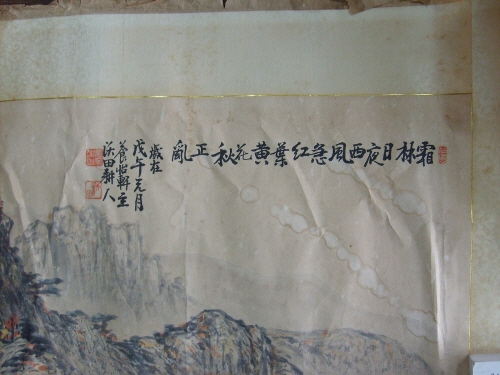 霜林日夜西風急紅葉黄花秋正亂
歲在
戊午元月
養怡軒主
浜田耕人